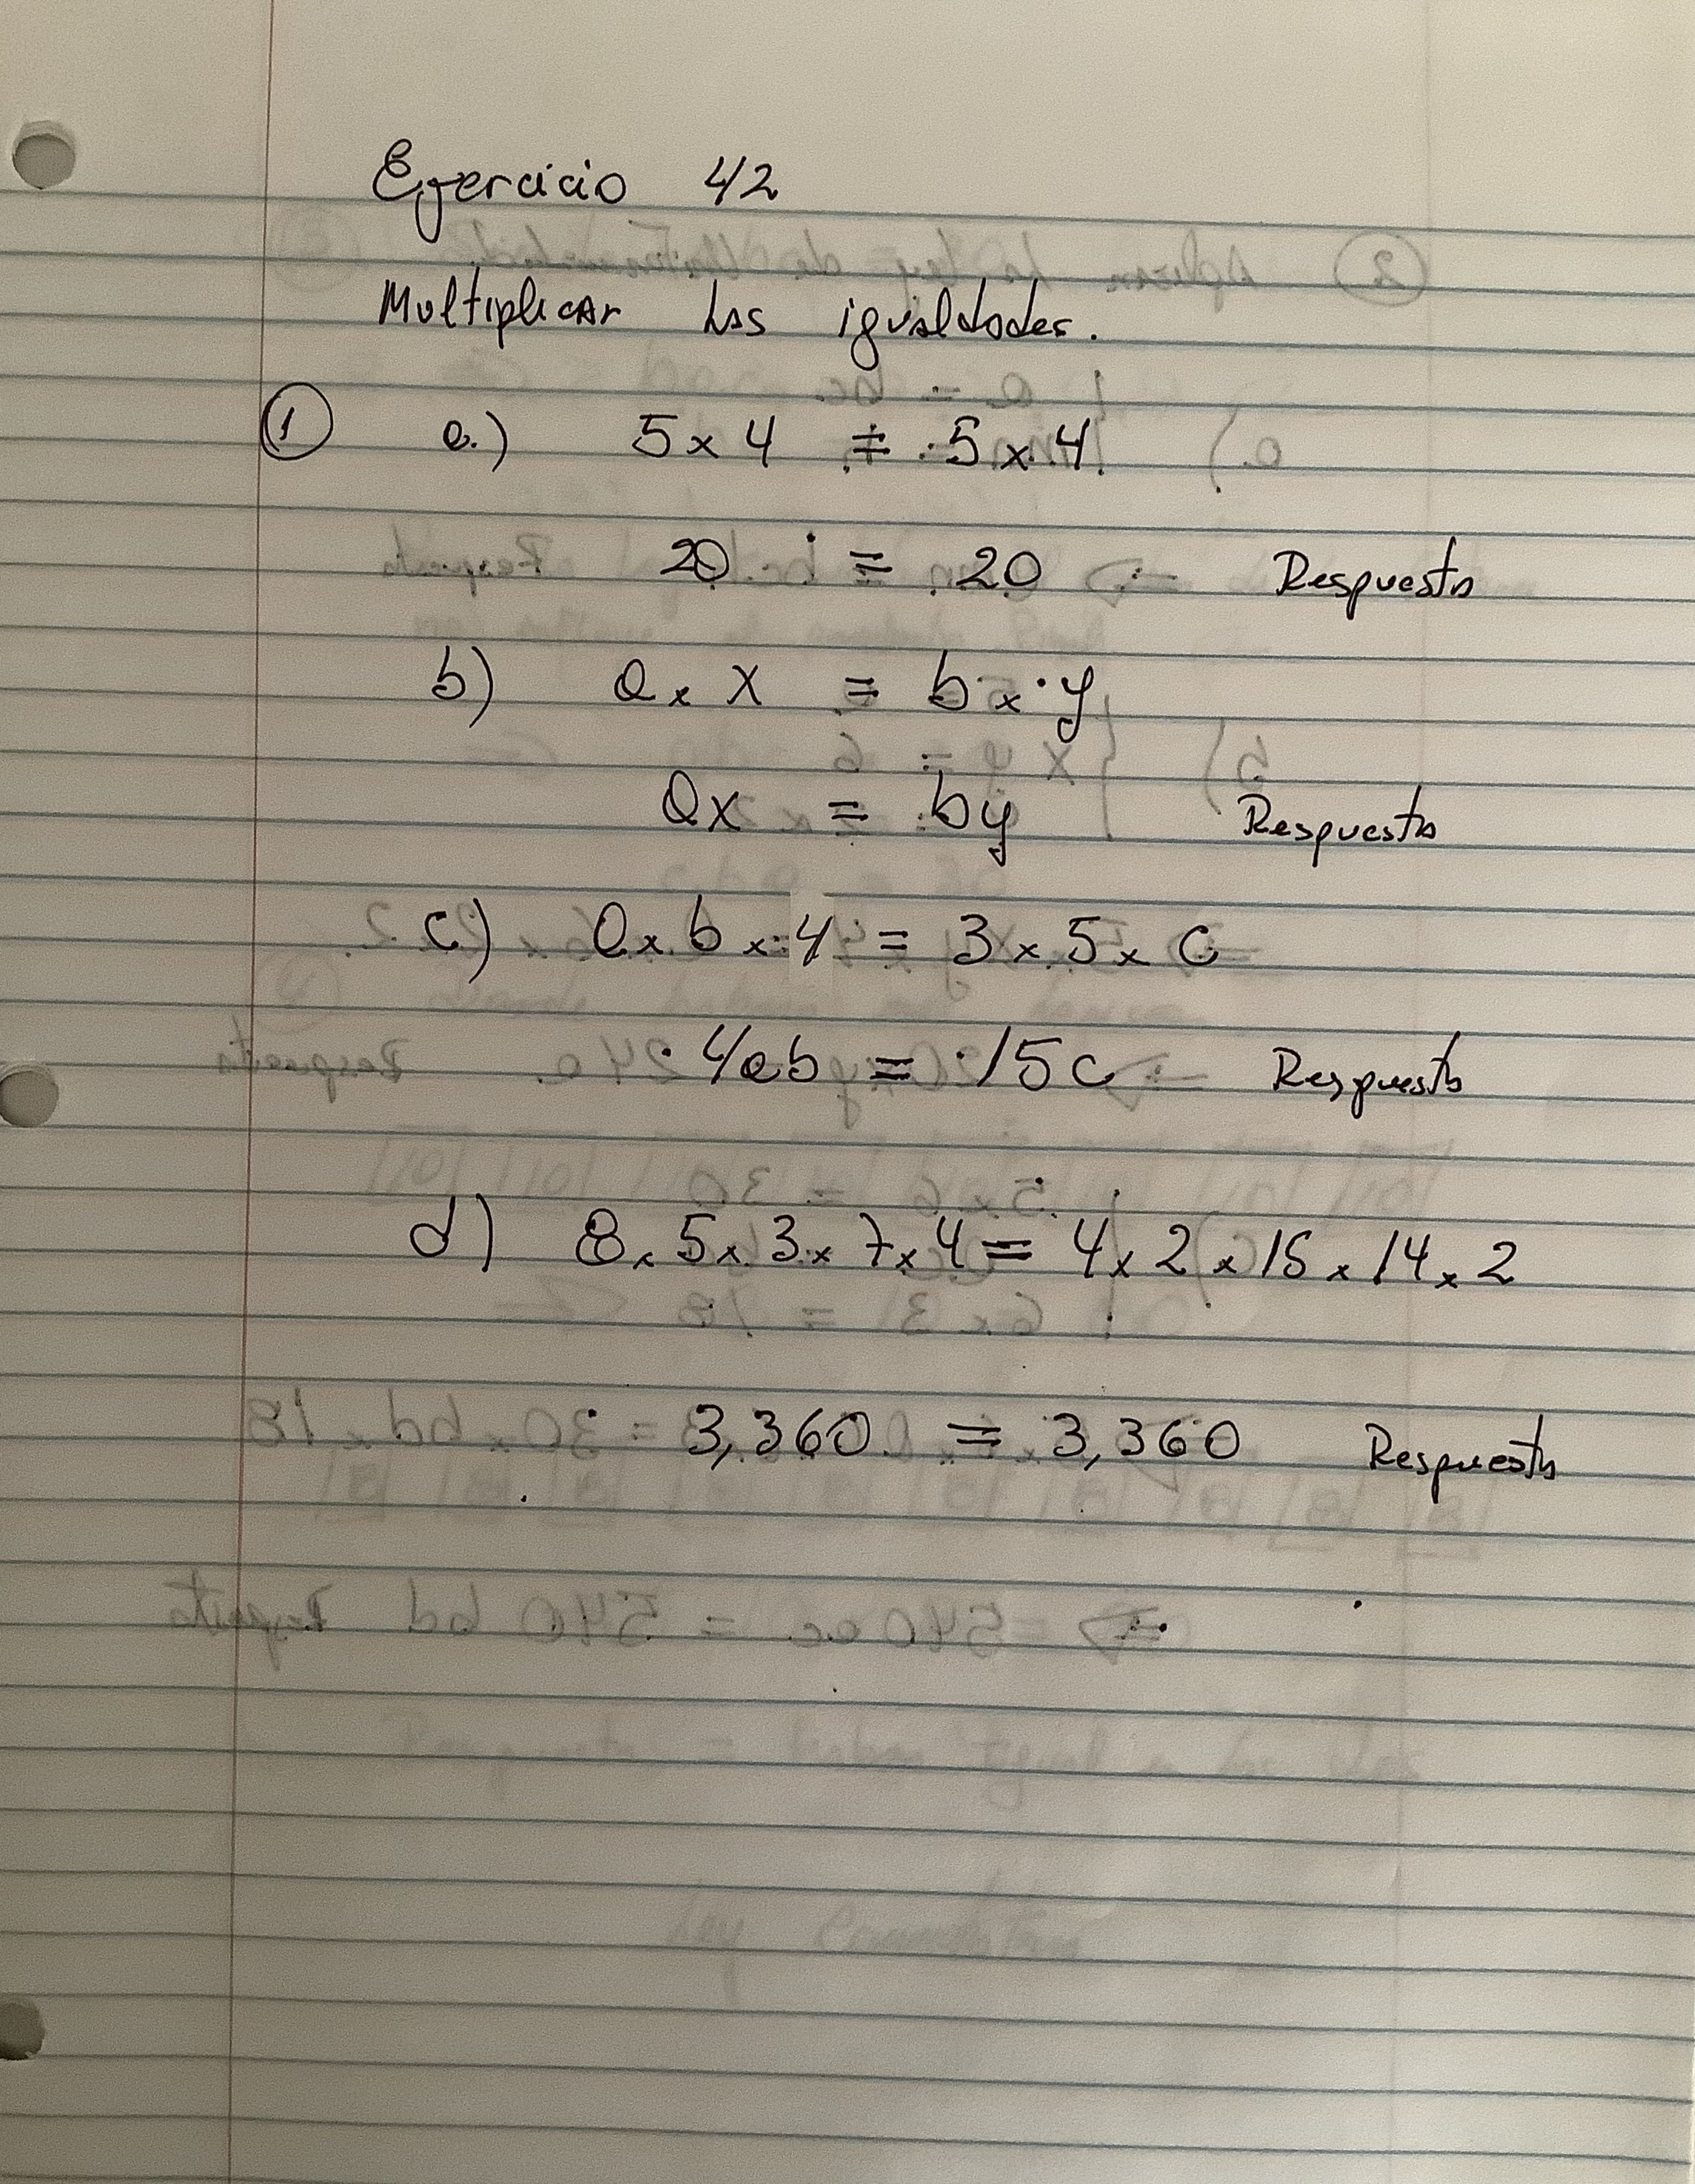 Ejercicio 42
Multiplicar las igualdades.
① a.) 5 x 4 = 5 x 4
20 = 20 Respuesta
b) a x X = b x y
ax = by Respuesta
c) a x b x 4 = 3 x 5 x c
4ab = 15c Respuesta
d) 8 x 5 x 3 x 7 x 4 = 4 x 2 x 15 x 14 x 2
3,360 = 3,360 Respuesta